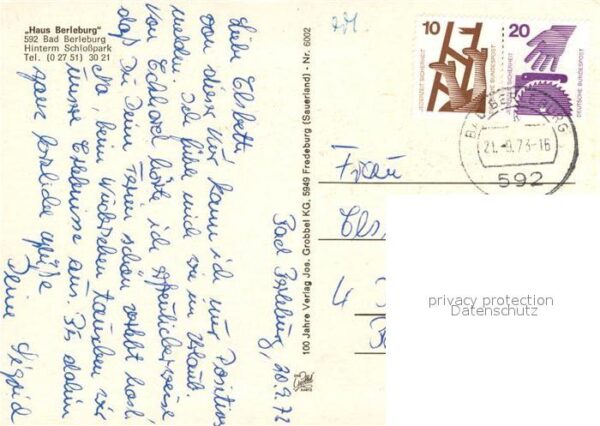 „Haus Berleburg"
592 Bad Berleburg
Hinterm Schloßpark
Tel. (0 27 51) 30 21
Bad Berleburg, 20.9.73
Liebe Elsbeth,
von dieser Kur kann ich nur Positives
melden. Ich fühle mich wie im Urlaub.
Von Eckhard hörte ich
daß Du Deinen schon verlebt hast.
Na beim tauschen wir
unsere Erlebnisse aus. Bis dahin
ganz herzliche Grüße
Deine Sigrid
100 Jahre Verlag Jos. Grobbel KG, 5949 Fredeburg (Sauerland) - Nr. 6002
10
JEDERZEIT SICHERHEIT
DEUTSCHE BUNDESPOST
20
JEDERZEIT SICHERHEIT
DEUTSCHE BUNDESPOST
BAD BERLEBURG
21.-9.73-16
592
Frau
Els
4
privacy protection
Datenschutz